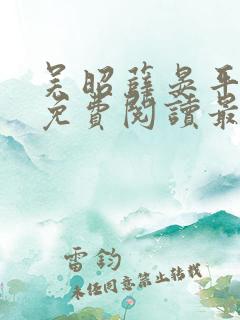 吴昭薛晏平
免費閱讀最
雷钧
未经同意禁止转载